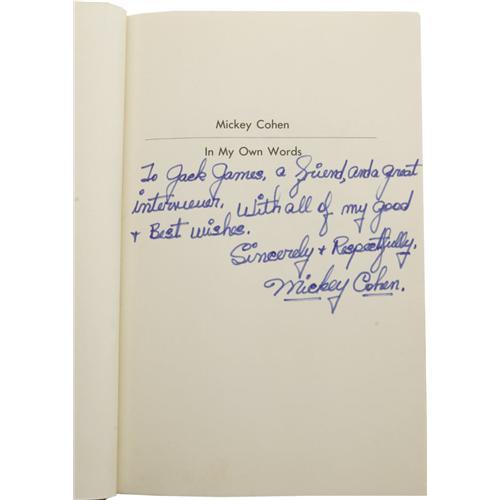 Mickey Cohen
In My Own Words
To Jack James, a friend, and a great
interviewer. With all of my good
+ Best wishes.
Sincerely + Respectfully,
Mickey Cohen.